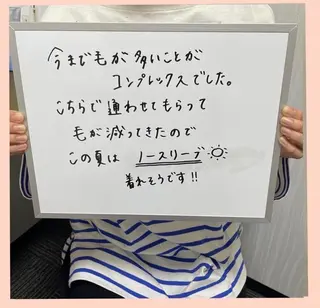 今まで毛が多いことが
コンプレックスでした。
こちらで通わせてもらって
毛が減ってきたので
この夏は ノースリーブ
着れそうです!!